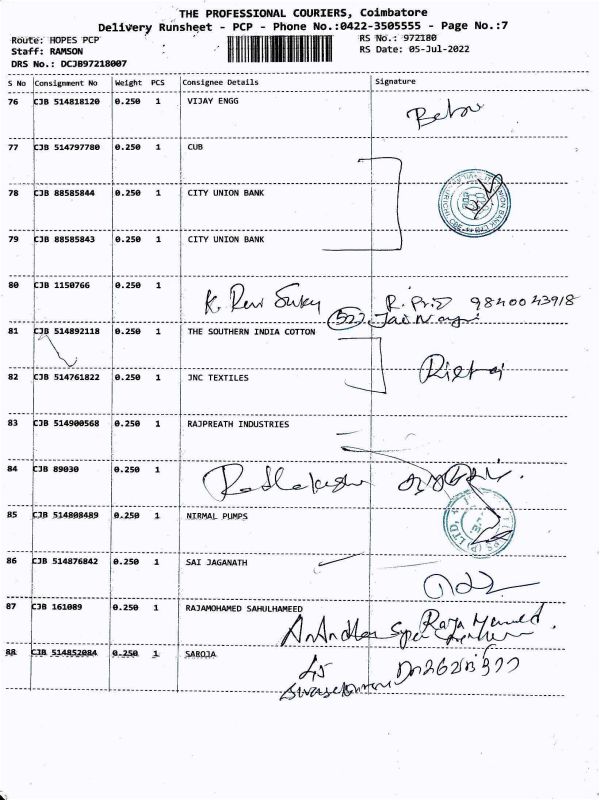 THE PROFESSIONAL COURIERS, Coimbatore
Delivery Runsheet - PCP - Phone No.:0422-3505555 - Page No.:7
Route: HOPES PCP RS No.: 972180
Staff: RAMSON RS Date: 05-Jul-2022
DRS No.: DCJB97218007
S No Consignment No Weight PCS Consignee Details Signature
76 CJB 514818120 0.250 1 VIJAY ENGG
77 CJB 514797780 0.250 1 CUB
78 CJB 88585844 0.250 1 CITY UNION BANK
79 CJB 88585843 0.250 1 CITY UNION BANK
80 CJB 1150766 0.250 1
9840043918
522
81 CJB 514892118 0.250 1 THE SOUTHERN INDIA COTTON
82 CJB 514761822 0.250 1 JNC TEXTILES
83 CJB 514900568 0.250 1 RAJPREATH INDUSTRIES
84 CJB 89030 0.250 1
85 CJB 514808489 0.250 1 NIRMAL PUMPS
86 CJB 514876842 0.250 1 SAI JAGANATH
87 CJB 161089 0.250 1 RAJAMOHAMED SAHULHAMEED
88 CJB 514852084 0.250 1 SAROJA